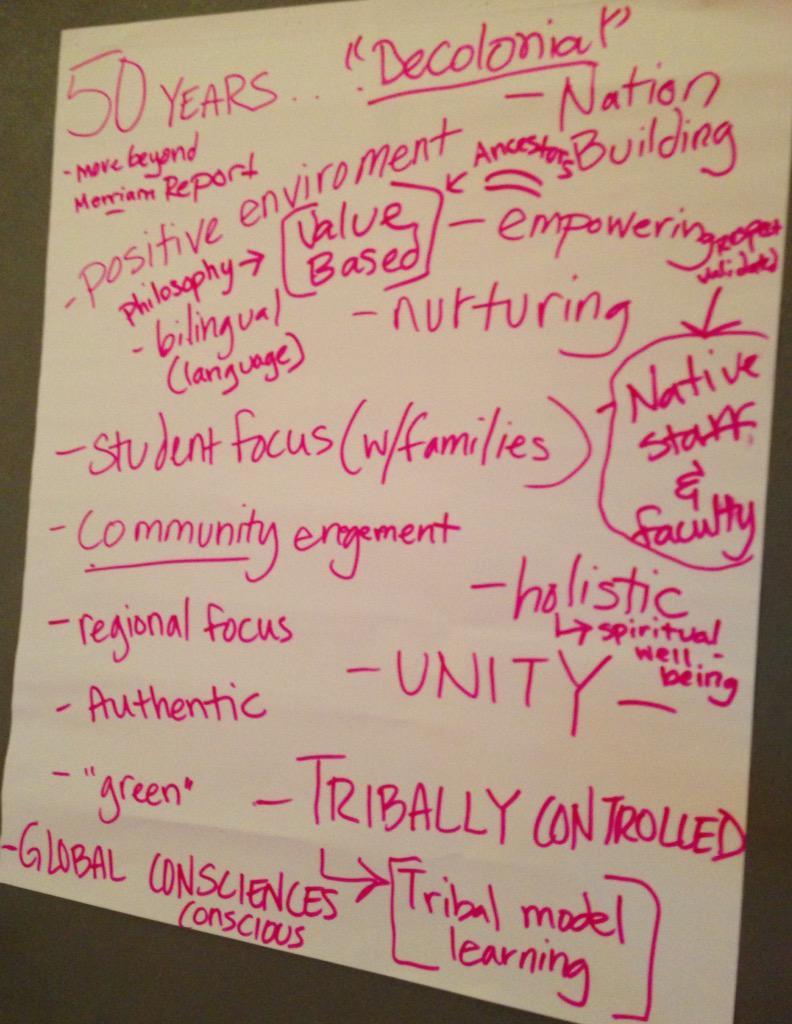 50 YEARS... "Decolonial"
- Nation Building
- move beyond
Merriam Report
- positive enviroment
Ancestors
philosophy → [Value
Based]
- empowering
validated
- bilingual
(language)
- nurturing
- Native
staff
&
faculty
- student focus (w/families)
- Community engement
- holistic
↳ spiritual
well-
being
- regional focus
- UNITY -
- Authentic
- "green"
- TRIBALLY CONTROLLED
↳ [Tribal model
learning]
- GLOBAL CONSCIENCES
conscious